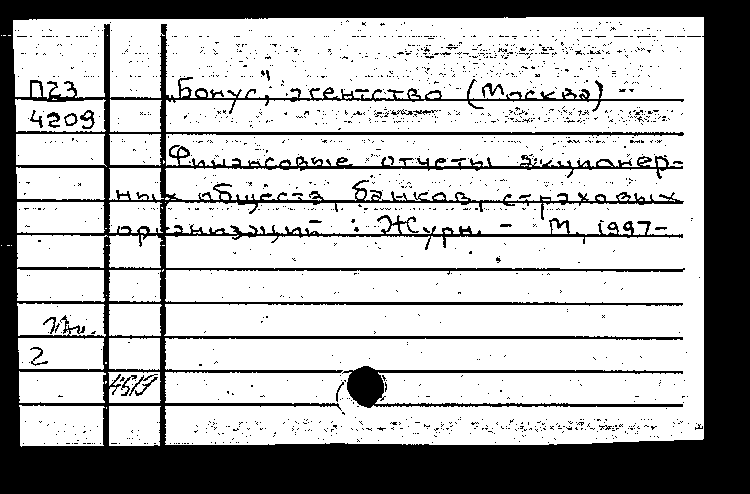 П23
4209
„Бонус", агентство (Москва) --
Финансовые отчеты акционер-
ных обществ, банков, страховых
организаций : Журн. - М., 1997-
2
4519